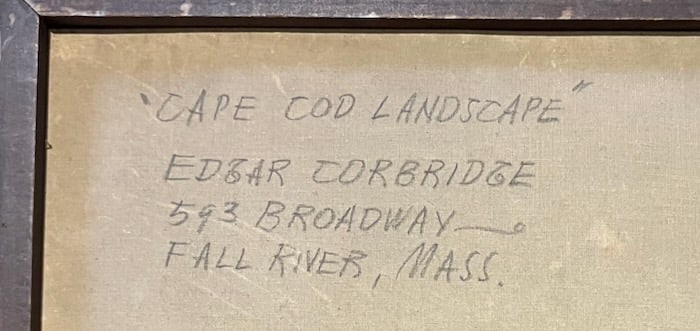 "CAPE COD LANDSCAPE"
EDGAR CORBRIDGE
593 BROADWAY
FALL RIVER, MASS.